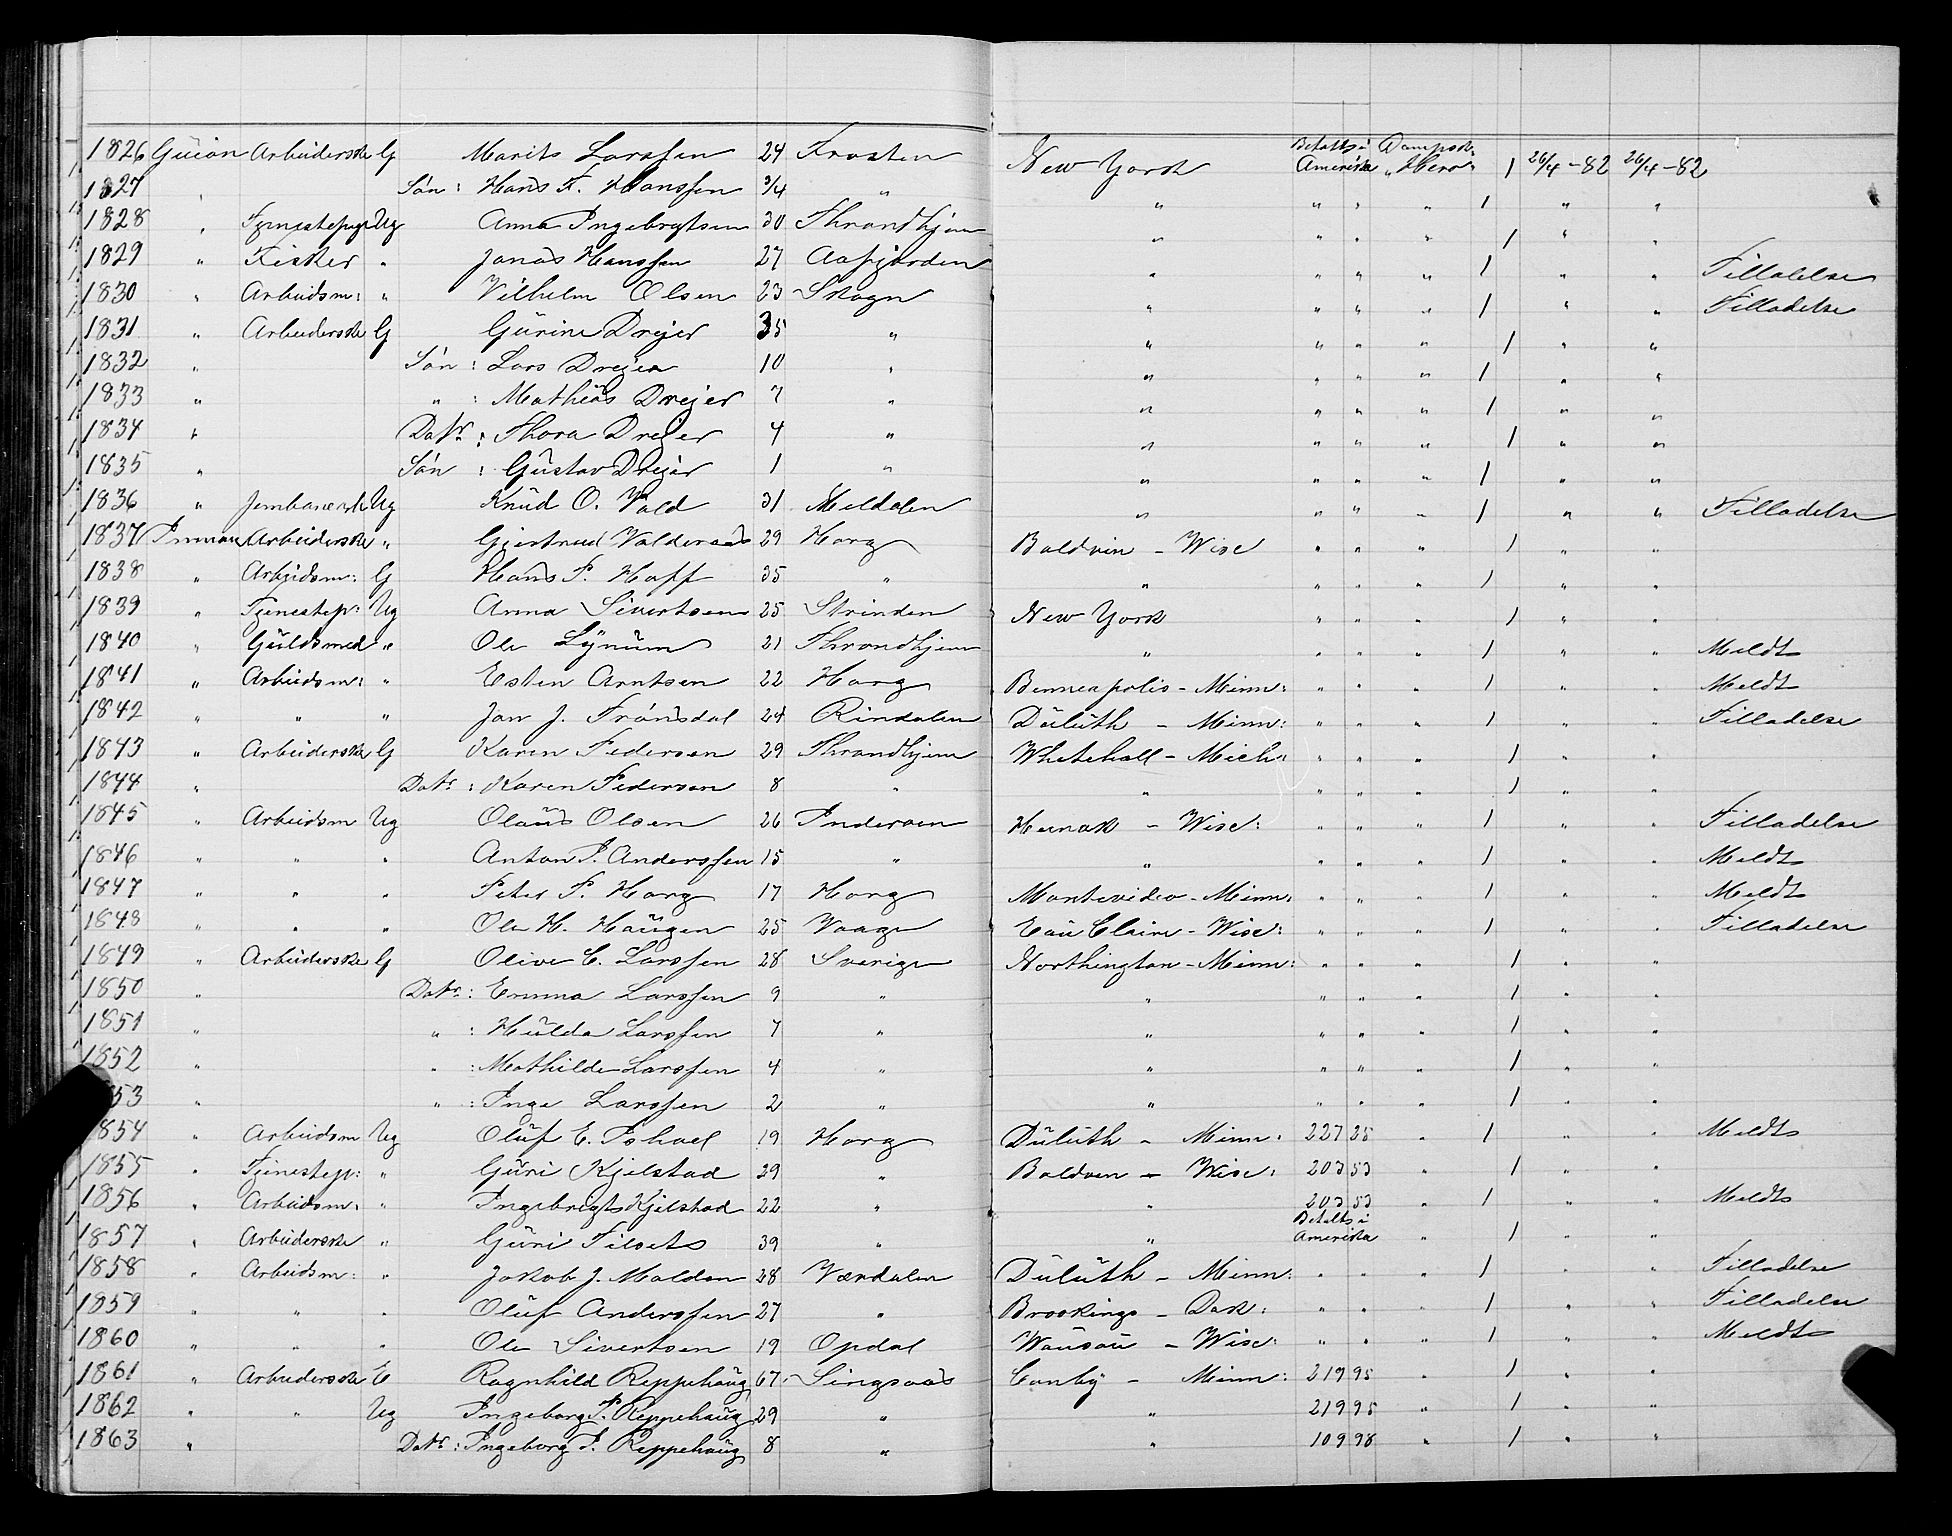 1826 Guion Arbeiderske G Marit Larssen 24 Frosten New York Betalt i Amerika Dampsk: "Hero" 1 26/4-82 26/4-82
1827 " Søn: Hans F. Hanssen 3/4 " " " " " 1 " "
1828 " Tjenestepige Ug Anna Ingebrigtsen 30 Throndhjem " " " " 1 " "
1829 " Fisker " Jonas Hanssen 27 Aafjorden " " " " 1 " " Tilladelse
1830 " Arbeidsm: " Vilhelm Olsen 23 Skogn " " " " 1 " " Tilladelse
1831 " Arbeiderske G Gurine Drejer 35 " " " " " 1 " "
1832 " Søn: Lars Drejer 10 " " " " " 1 " "
1833 " " : Mathias Drejer 7 " " " " " 1 " "
1834 " Datr: Thora Drejer 4 " " " " " 1 " "
1835 " Søn: Gustav Drejer 1 " " " " " 1 " "
1836 " Ug Knud O. Vold 31 Meldalen " " " " 1 " " Tilladelse
1837 Inman Arbeiderske " Gjertrud Valderaas 29 Horg Baldvin - Wisc " " " 1 " "
1838 " Arbeidsm: G Hans P. Hoff 35 " " " " " 1 " "
1839 " Tjenestep: Ug Anna Sivertsen 25 Strinden New York " " " 1 " "
1840 " Guldsmed " Ole Lynum 21 Throndhjem " " " " 1 " " Meldt
1841 " Arbeidsm: " Esten Arntsen 22 Horg Benneapolis - Minn: " " " 1 " " Meldt
1842 " " " Jon J. Trønsdal 24 Rindalen Duluth - Minn: " " " 1 " " Tilladelse
1843 " Arbeiderske G Karen Pedersen 29 Throndhjem Whitehall - Mich: " " " 1 " "
1844 " Datr: Karen Pedersen 8 " " " " " 1 " "
1845 " Arbeidsm Ug Olaus Olsen 26 Inderøen - Wisc: " " " 1 " " Tilladelse
1846 " " " Anton P. Anderssen 15 " " " " " 1 " " Meldt
1847 " " " Peter P. Horg 17 Horg Montevideo - Minn: " " " 1 " " Meldt
1848 " " " Ole H. Haugen 25 Vaage Eau Claire - Wisc: " " " 1 " " Tilladelse
1849 " Arbeiderske G Olive C. Larssen 28 Sverige Northington - Minn: " " " 1 " "
1850 " Datr: Emma Larssen 9 " " " " " 1 " "
1851 " " : Hulda Larssen 7 " " " " " 1 " "
1852 " " : Mathilde Larssen 4 " " " " " 1 " "
53 " " : Inga Larssen 2 " " " " " 1 " "
1854 " Arbeidsm Ug Oluf E. 19 Horg Duluth - Minn: 227 25 " 1 " " Meldt
1855 " Tjenestep: " Guri Kjelstad 29 " Baldven - Wisc: 203 53 " 1 " "
1856 " Arbeidsm: " Ingebrigt Kjelstad 22 " " 203 53 " 1 " " Meldt
1857 " Arbeiderske " Guri Tilset 39 " " Betalt i Amerika " 1 " "
1858 " Arbeidsm: " Jakob J. Molden 28 Værdalen Duluth - Minn: " " " 1 " " Tilladelse
1859 " " " Oluf Anderssen 27 " Brookings - Dak: " " " 1 " " Tilladelse
1860 " " " Ole Sivertsen 19 Opdal Wausau - Wisc: " " " 1 " " Meldt
1861 " Arbeiderske E Ragnhild Reppehaug 67 Singsaas Canby - Minn: 219 95 " 1 " "
1862 " " Ug Ingeborg P. Reppehaug 29 " " 219 95 " 1 " "
1863 " Datr: Ingeborg P. Reppehaug 8 " " 109 98 " 1 " "